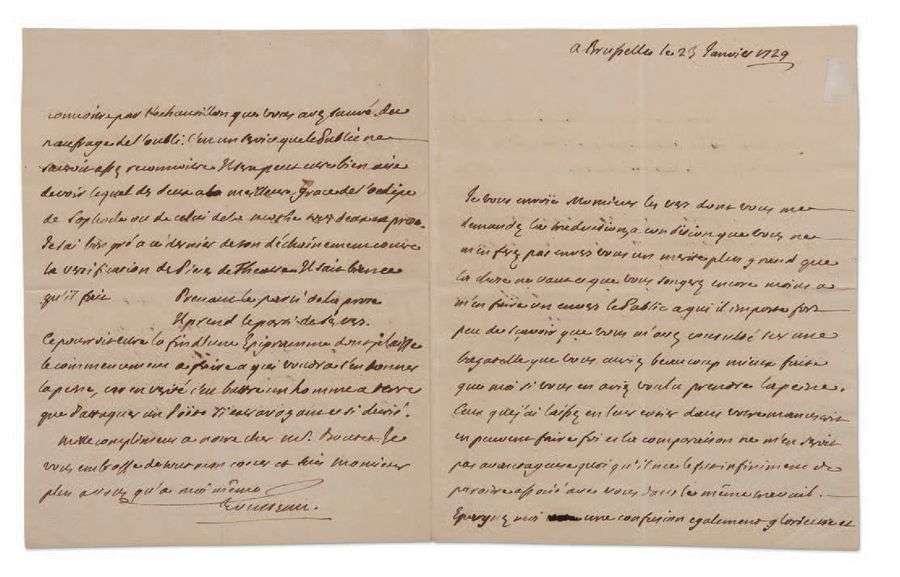 a Bruxelles le 23 Janvier 1729
Je vous envoie Monsieur les vers dont vous me
demandez la traduction, a condition que vous ne
m'en ferez pas envers vous un merite plus grand que
la chose ne vaut et que vous songerez encore moins a
m'en faire un envers le Public a qui il importe fort
peu de sçavoir que vous m'avez consulté sur une
bagatelle que vous auriez beaucoup mieux faite
que moi si vous en aviez voulu prendre la peine.
Ceux que j'ai laissez en leur entier dans votre manuscrit
en peuvent faire foi et la comparaison ne m'en seroit
pas avantageuse quoi qu'il me le fut infiniment de
paroitre associé avec vous dans le même travail.
Epargnez moi une confusion egalement glorieuse et
connoitre par l'echantillon que vous avez sauvé du
naufrage de l'oubli. C'est un service que le Public ne
sauroit assez reconnoitre. Il sera peut etre bien aise
de voir lequel des deux a meilleure grace de l'Oedipe
de Sophocle ou de celui de la Mothe en prose.
Je sai bon gré a ce dernier de son déchainement contre
la versification des Pieces de Theatre. Il sait bien ce
qu'il fait
Prenant le parti de la prose
Il prend le parti de ses vers.
Ce pourroit etre la fin d'une Epigramme dont je laisse
le commencement a faire a qui voudra s'en donner
la peine, car en verité c'est battre un homme a terre
que d'attaquer un Poëte
Mille complimens a notre cher Mr. Je
vous embrasse de tout mon coeur et suis Monsieur
plus a vous qu'a moi même
Rousseau.